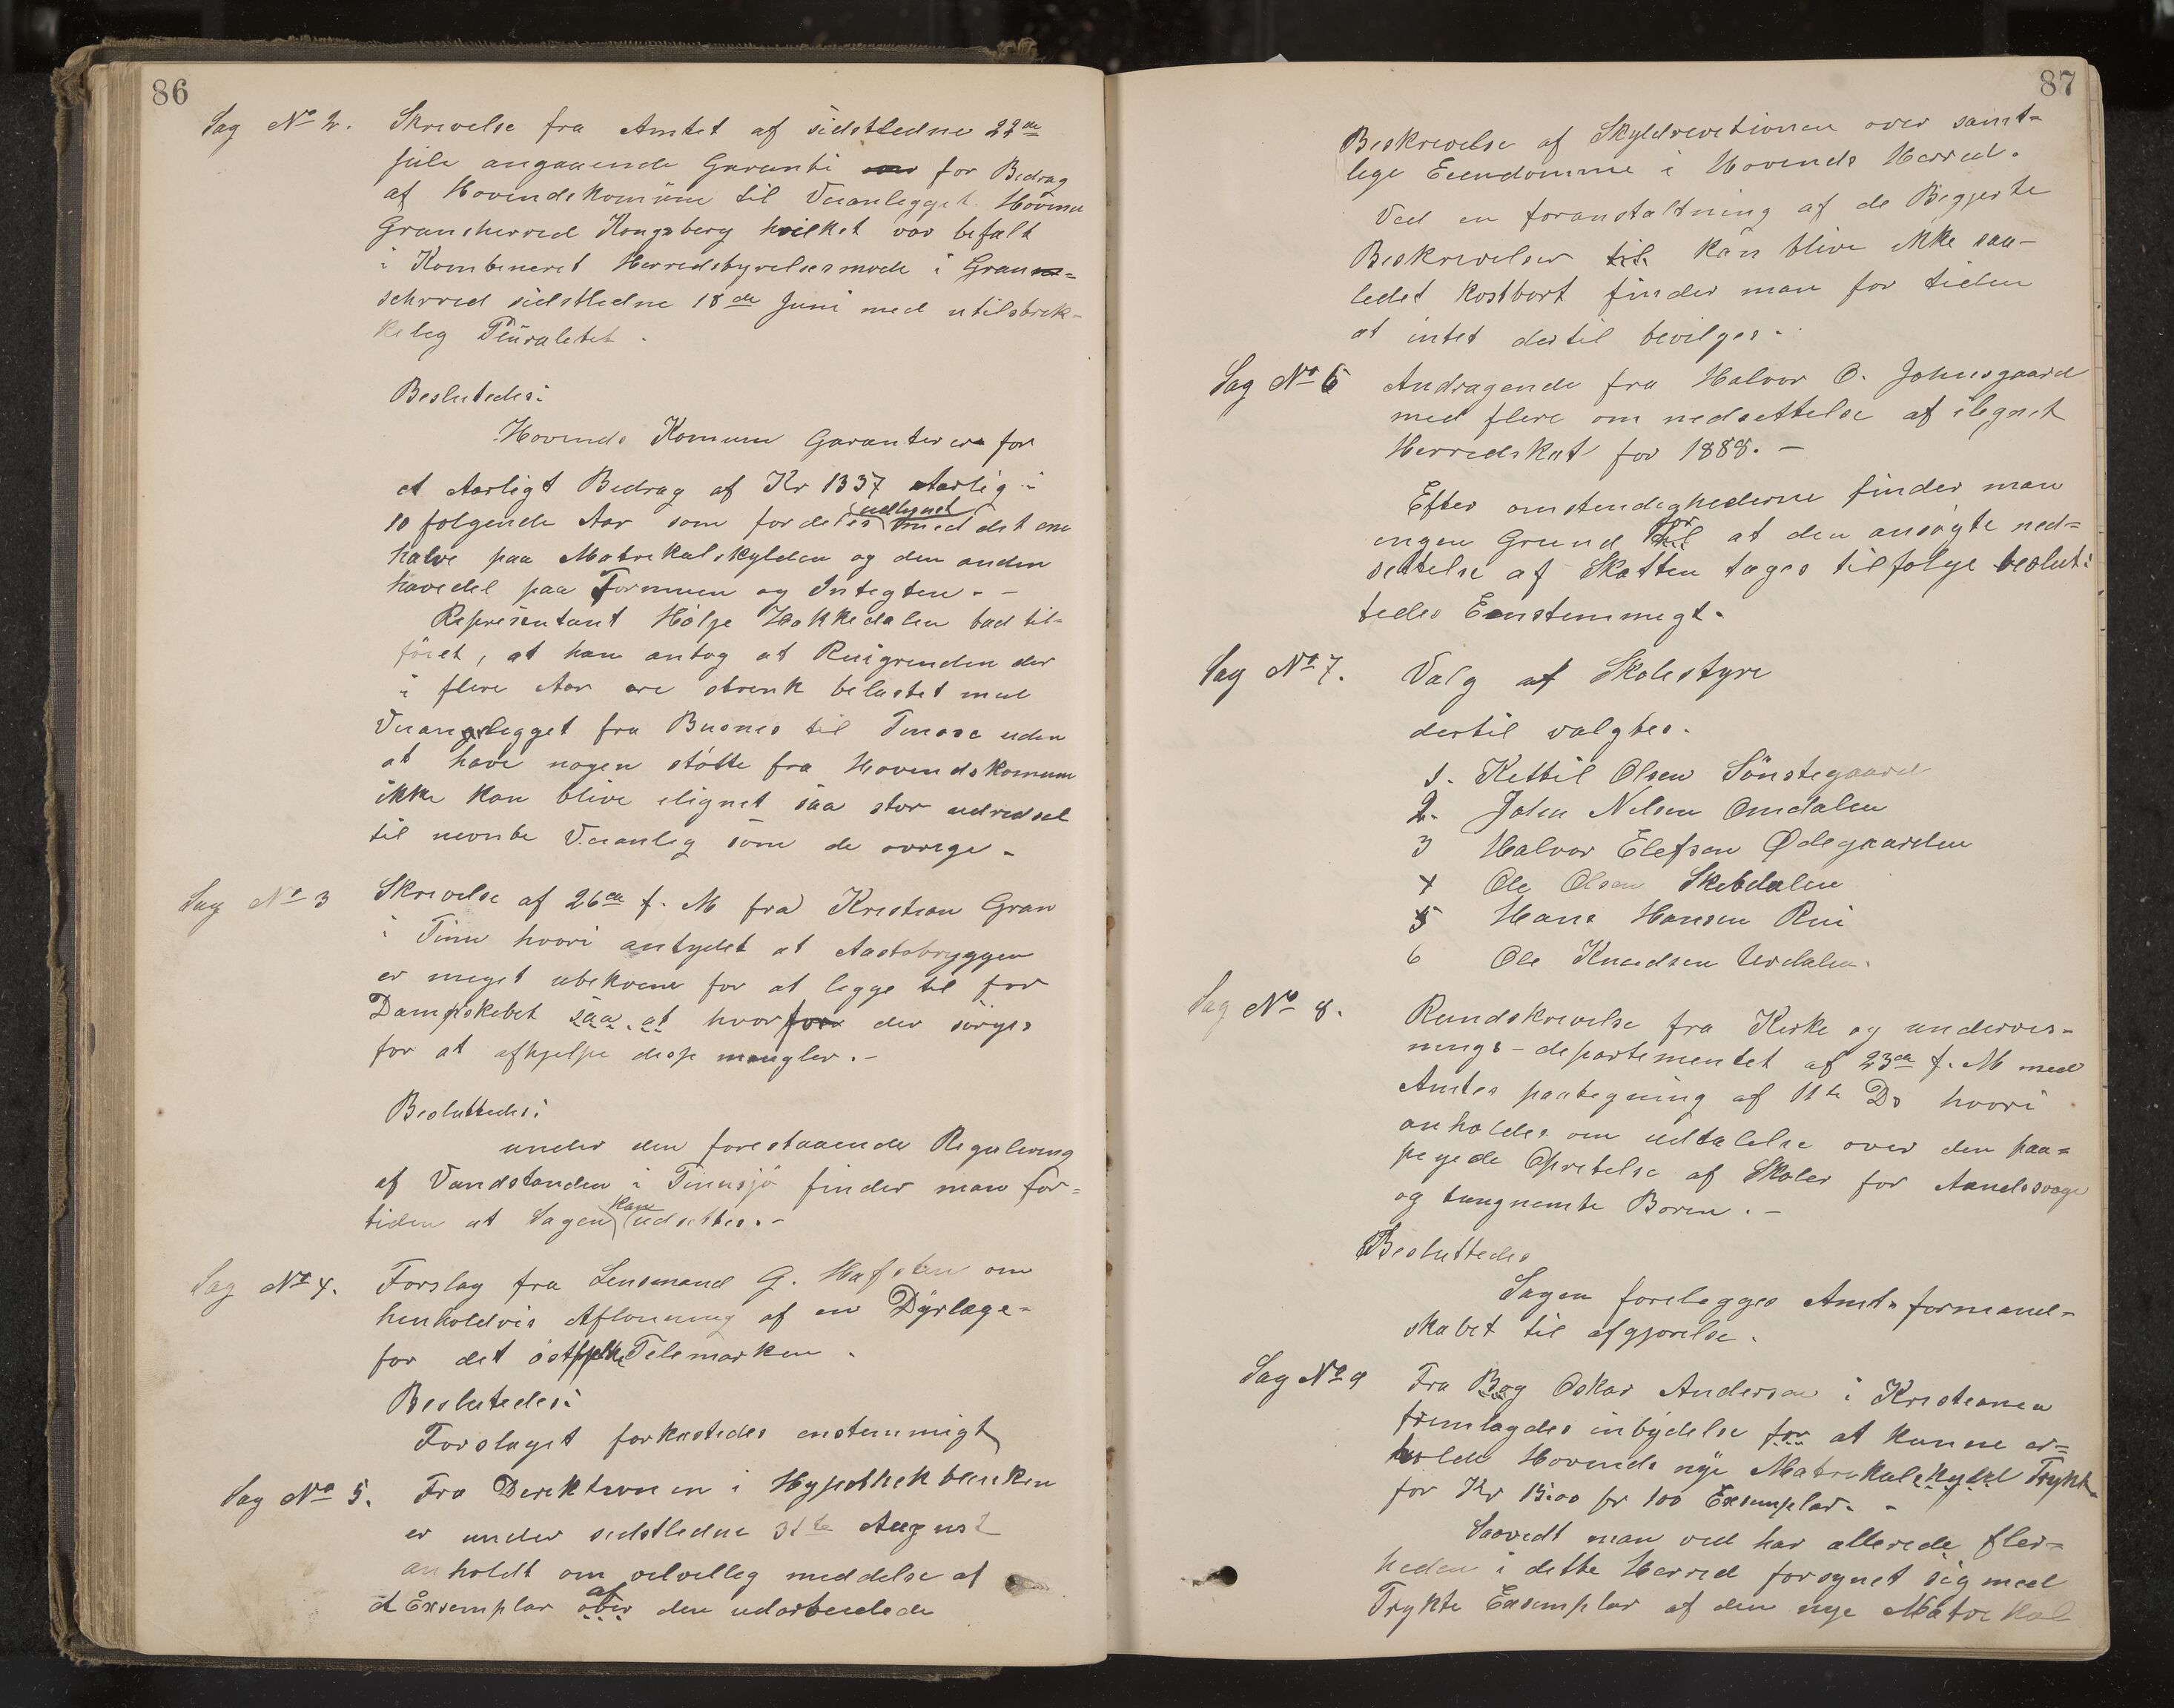 86
Sag No 2. Skrivelse fra Amtet af sidstledne 22de
Juli angaaende Garanti for Bedrag
af Hovindskomune til Veianlegget Hovind
Gransherred Kongsberg hvilket var befalt
i Kombineret Herredstyrelsesmøde i Gran-
scherred sidstledne 18de Juni med utilstrek-
kelig
Besluttedes:
Hovinds Komune Garanterer for
et Aarligt Bedrag af Kr 1337 Aarlig i
10 folgende Aar som fordeles udlignet med det ene
halve paa Matrikulskylden og den anden
havedel paa Formuen og Integten. –
Represintant Hølge Hakkedalen bad til-
føiet, at han antog at Ruigrenden der
i flere Aar ere strenk belastet med
Veianlegget fra Busnes til Tinose uden
at have nogen støtte fra Hovindskomune
ikke kan blive elignet saa stor udredsel
til nevnte Veianleg som de ovrige –
Sag No 3 Skrivelse af 26de f. M fra Kristian Gran
i Tinn hvori antydet at Aastobryggen
er meget ubekvem for at legge til for
Dampskebet saa at hvorfor der sørges
for at afhjelpe disse mangler. –
Besluttedes:
under den forestaaende Regulering
af Vandstanden i Tinnsjø finder man for=
tiden at Sagen kan udsettes. –
Sag No 4. Forslag fra Lensmand G. Hafsten om
henholdvis Aflonning af en Dyrlæge-
for det øst Telemarken.
Beslutedes:
Forslaget forkastedes enstemmigt
Sag No 5. Fra Direktionen i Hypothekbanken
er under sidstledne 31te August
anholdt om velvillig meddelse af
et Exsemplar over af den udarbeidede
87
Beskrivelse af Skyldrevitionen over samt-
lige Eiendomme i Hovinds Herred.
Ved en foranstaltning af de Begjerte
Beskrivelser til kan blive ikke saa-
ledet kostbart finder man for tiden
at intet dertil bevilges.
Sag No 6 Andragende fra Halvor O. Johnsgaard
med flere om nedsettelse af ilignet
Herredskat for 1888. –
Efter omstendighederne finder man
ingen Grund til for at den ansøgte ned=
settelse af Skatten tages tilfølge beslut:
tedes Eenstemmigt.
Sag No 7. Valg af Skolestyre
dertil valgtes.
1. Kettil Olsen Sønstegaard
2. John Nilsen Omdalen
3 Halvor Elefsen Ødegaarden
4 Ole Olsen Skebdalen
5 Hans Hansen Rui
6 Ole Knudsen Urdalen.
Sag No 8. Rundskrivelse fra Kirke og undervis-
nings-departementet af 23de f. M med
Amtes paategning af 11te Ds hvori
anholdes om udtalelse over den paa=
pegede Opretelse af Skoler for Aandssvage
og tungnemte Boren. –
Besluttedes
Sagen forelegges Amtsformand-
skabet til afgjorelse.
Sag No 9 Fra Bog Oskar Andersen i Kristiania
fremlagdes inbydelse for at kunne er=
holde Hovinds nye Matrikulskyld Trykt
for Kr 15.00 pr 100 Exsemplar. –
Saavidt man ved har allerede fler=
heden i dette Herred forsynet sig med
Trykte Exsemplar af den nye Matrikul